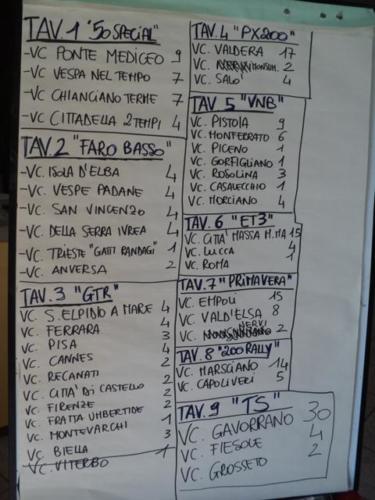 TAV. 1 "50 SPECIAL"
-VC PONTE MEDICEO 9
-VC VESPA NEL TEMPO 7
-VC CHIANCIANO TERME 7
-VC CITTADELLA 2 TEMPI 4
TAV. 2 "FARO BASSO"
-VC. ISOLA D'ELBA 4
-VC. VESPE PADANE 4
-VC. SAN VINCENZO 4
-VC. DELLA SERRA IVREA 4
-VC. TRIESTE "GATTI RANDAGI" 1
-VC. ANVERSA 2
TAV. 3 "GTR"
VC. S. ELPIDIO A MARE 4
VC. FERRARA 4
VC. PISA 3
VC. CANNES 4
VC. RECANATI 2
VC. CITTA' DI CASTELLO 2
VC. FIRENZE 2
VC. FRATTA UMBERTIDE 2
VC. MONTEVARCHI 1
VC. BIELLA 3
VC. VITERBO 1
TAV. 4 "PX200"
VC. VALDERA 17
VC. 2
VC. SALO' 4
TAV. 5 "VNB"
VC. PISTOIA 9
VC. MONFERRATO 6
VC. PICENO 1
VC. GORFIGLIANO 1
VC. ROSOLINA 3
VC. CASALVECCHIO 1
VC. MORCIANO 4
TAV. 6 "ET3"
VC. CITTA' MASSA M.MA 15
VC. LUCCA 4
VC. ROMA 1
TAV. 7 "PRIMAVERA"
VC. EMPOLI 15
VC. VALD'ELSA 8
VC. NERVI 2
TAV. 8 "200 RALLY"
VC. MARSCIANO 14
VC. CAPOLIVERI 5
TAV. 9 "TS"
VC. GAVORRANO 30
VC. FIESOLE 4
VC. GROSSETO 2